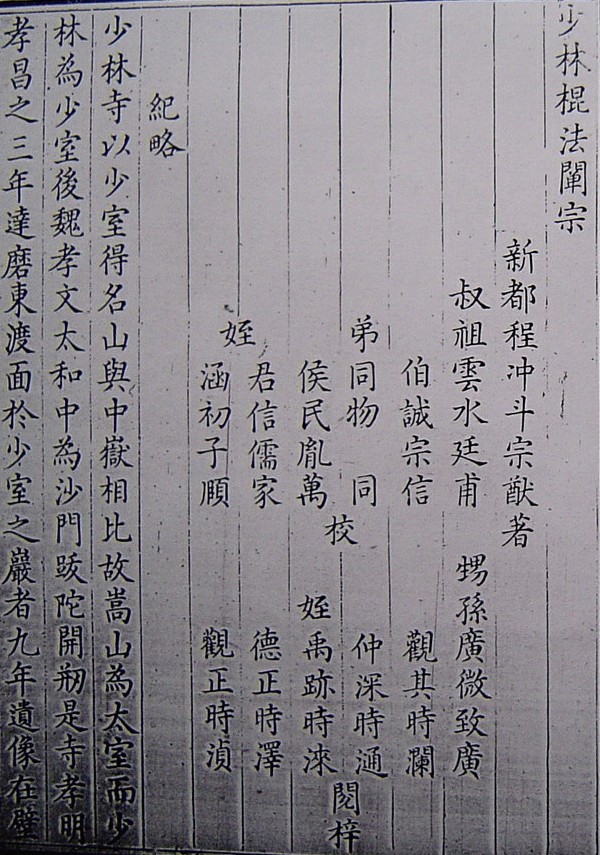 少林棍法闡宗
新都程冲斗宗猷著
叔祖雲水廷甫
甥孫廣微致廣
伯誠宗信
觀其時瀾
弟同物　同
仲深時通
侯民胤萬
校
姪禹跡時淶
閱梓
姪
君信儒家
德正時澤
涵初子頤
觀正時湞
紀略
少林寺以少室得名山與中嶽相比故嵩山為太室而少
林為少室後魏孝文太和中為沙門跋陀開剏是寺孝明
孝昌之三年達磨東渡面於少室之巖者九年遺像在壁